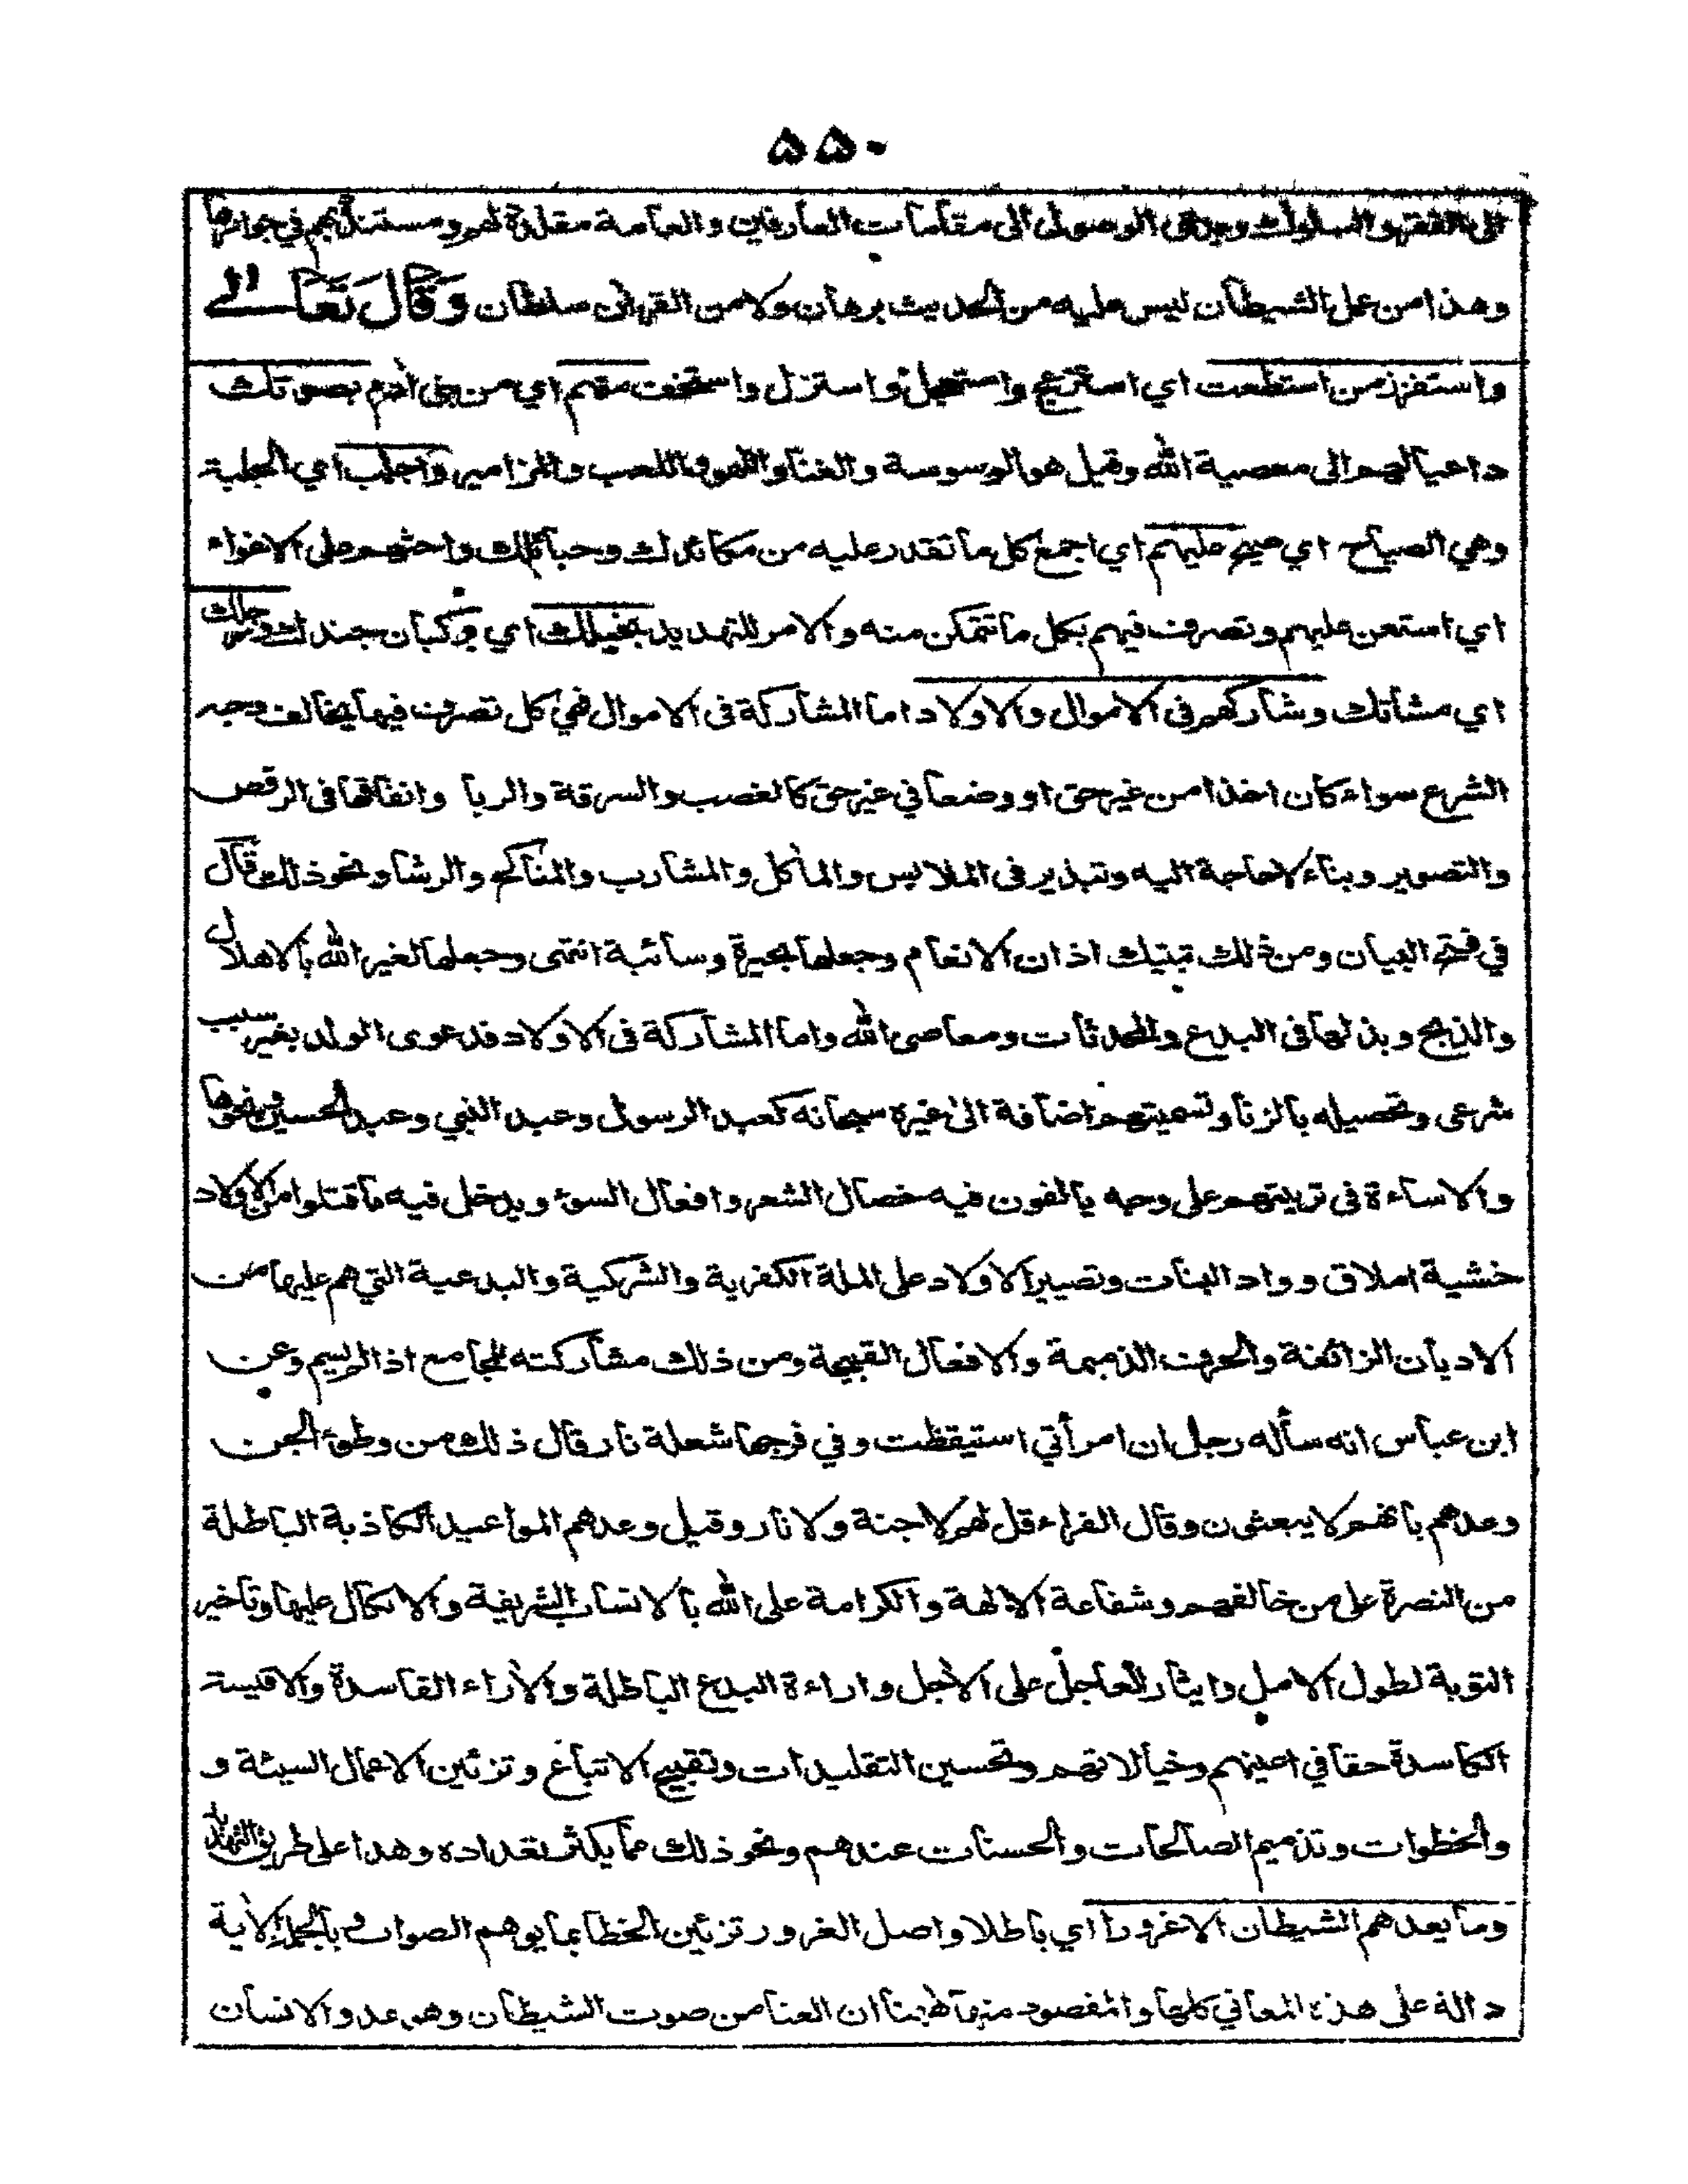 ۵۵۰
الى الفقر والسلوك ومدعى الوصول الى مقامات العارفين والعامة مقلدة لهم ومستندة بهم في جوازها
وهذا من عمل الشيطان ليس عليه من الحديث برهان ولا من القرآن سلطان وَقَالَ تَعَالى
واستفزز من استطعت اي استزعج واستعجل واستزل واستخف منهم اي من بني آدم بصوتك
داعيا لهم الى معصية الله وقيل هو الوسوسة والغنا واللهو واللعب والمزامير واجلب اي الجلبة
وهي الصياح اي صح عليهم اي اجمع كل ما تقدر عليه من مكائدك وحبائلك واحثهم على الاغواء
اي استعن عليهم وتصرف فيهم بكل ما تتمكن منه والامر للتهديد بخيلك اي بركبان جندك ورجلك
اي مشاتك وشاركهم فى الاموال والاولاد اما المشاركة فى الاموال فهي كل تصرف فيها يخالف وجه
الشرع سواء كان اخذا من غير حق او وضعا في غير حق كالغصب والسرقة والربا وانفاقها فى الرقص
والتصوير وبناء لا حاجة اليه وتبذير فى الملابس والمآكل والمشارب والمناكح والرشا ونحو ذلك قال
في فتح البيان ومن ذلك تبتيك اذان الانعام وجعلها بحيرة وسائبة انتهى وجعلها لغير الله بالاهلال
والذبح وبذلها فى البدع والمحدثات ومعاصى الله واما المشاركة فى الاولاد فدعوى الولد بغير سبب
شرعى وتحصيله بالزنا وتسميتهم اضافة الى غيره سبحانه كعبد الرسول وعبد النبي وعبد الحسين ونحوها
والاساءة فى تربيتهم على وجه يالفون فيه خصال الشعر وافعال السوء ويدخل فيه ما قتلوا من الاولاد
خشية املاق وواد البنات وتصيير الاولاد على الملة الكفرية والشركية والبدعية التي هم عليها من
الاديان الزائغة والحرف الذميمة والافعال القبيحة ومن ذلك مشاركته للمجامع اذا لم يسم وعن
ابن عباس انه سأله رجل ان امرأتي استيقظت وفي فرجها شعلة نار قال ذلك من وطئ الجن
وعدهم بانهم لا يبعثون وقال الفراء قل لهم لا جنة ولا نار وقيل وعدهم المواعيد الكاذبة الباطلة
من النصرة على من خالفهم وشفاعة الالهة والكرامة على الله بالانساب الشريفة والاتكال عليها وتاخير
التوبة لطول الامل وايثار العاجل على الآجل واراءة البدع الباطلة والآراء الفاسدة والاقيسة
الكاسدة حقا في اعينهم وخيالاتهم وتحسين التقليدات وتقبيح الاتباع وتزئين الاعمال السيئة و
والخطوات وتذميم الصالحات والحسنات عندهم ونحو ذلك مما يكثر تعداده وهذا على طريق التهديد
وما يعدهم الشيطان الا غرورا اي باطلا واصل الغرور تزئين الخطا بما يوهم الصواب وبالجملة الآية
دالة على هذه المعاني كلها والمقصود منها ههنا ان الغنا من صوت الشيطان وهو عدو الانسان